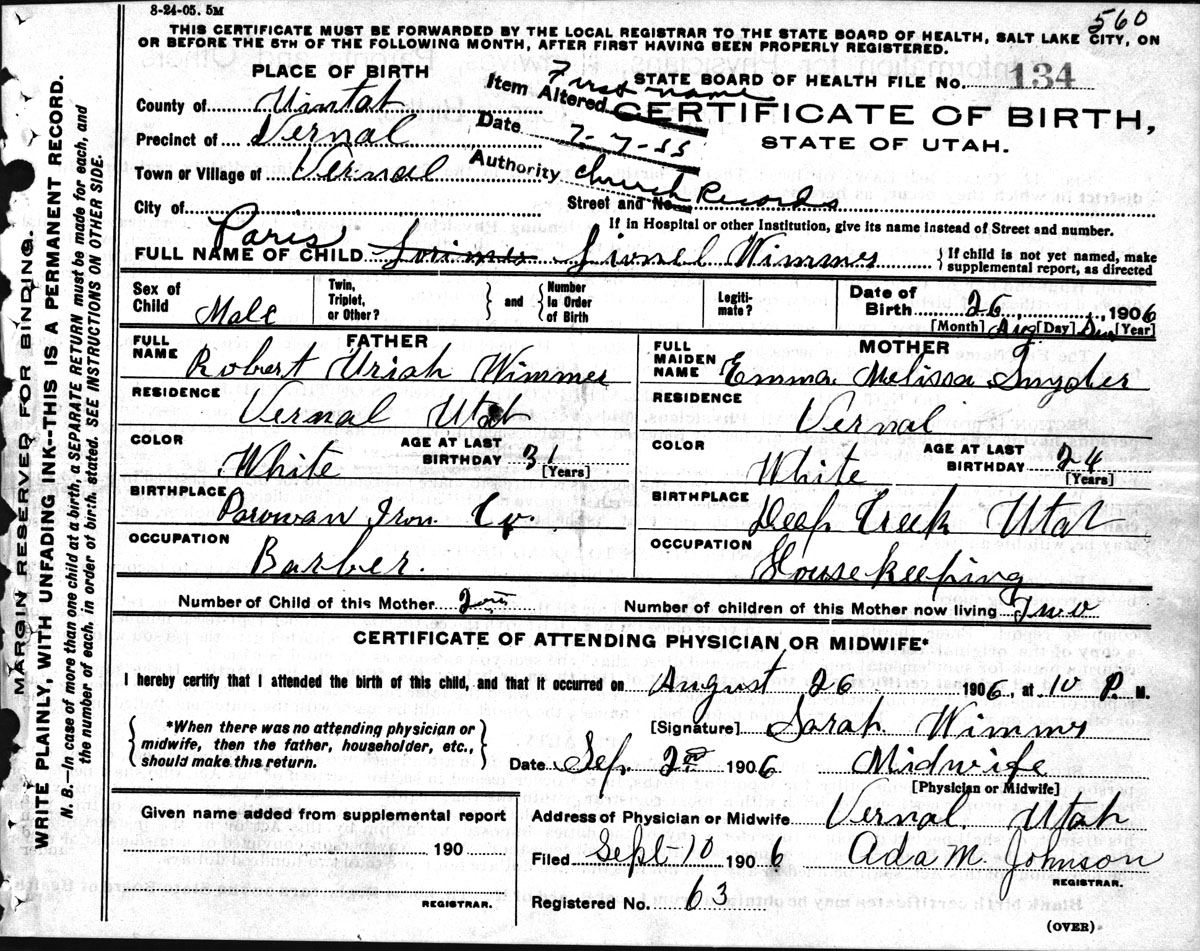 8-24-05. 5M
560
THIS CERTIFICATE MUST BE FORWARDED BY THE LOCAL REGISTRAR TO THE STATE BOARD OF HEALTH, SALT LAKE CITY, ON
OR BEFORE THE 5TH OF THE FOLLOWING MONTH, AFTER FIRST HAVING BEEN PROPERLY REGISTERED.
PLACE OF BIRTH
STATE BOARD OF HEALTH FILE No. 134
Item Altered First name
County of Uintah
CERTIFICATE OF BIRTH,
Date 7-7-55
Precinct of Vernal
STATE OF UTAH.
Authority Church Records
Town or Village of Vernal
Street and No.
City of
If in Hospital or other Institution, give its name instead of Street and number.
Paris
FULL NAME OF CHILD Lionel Wimmer
{ If child is not yet named, make
supplemental report, as directed
Sex of
Child Male
Twin,
Triplet,
or Other?
} and {
Number
in Order
of Birth
Legiti-
mate?
Date of
Birth 26, 1906
[Month] Aug [Day] Sun [Year]
FATHER
FULL
NAME Robert Uriah Wimmer
RESIDENCE
Vernal Utah
COLOR
White
AGE AT LAST
BIRTHDAY 31
[Years]
BIRTHPLACE
Parowan Iron Co.
OCCUPATION
Barber.
MOTHER
FULL
MAIDEN
NAME Emma Melissa Snyder
RESIDENCE
Vernal
COLOR
White
AGE AT LAST
BIRTHDAY 24
[Years]
BIRTHPLACE
Deep Creek Utah
OCCUPATION
Housekeeping
Number of Child of this Mother
Number of children of this Mother now living Two
CERTIFICATE OF ATTENDING PHYSICIAN OR MIDWIFE*
I hereby certify that I attended the birth of this child, and that it occurred on August 26 1906, at 10 P. M.
{ *When there was no attending physician or
midwife, then the father, householder, etc.,
should make this return. }
[Signature] Sarah Wimmer
Date Sep. 2nd 1906 Midwife
[Physician or Midwife]
Given name added from supplemental report
190
REGISTRAR.
Address of Physician or Midwife Vernal Utah
Filed Sept-10 1906 Ada M. Johnson
REGISTRAR.
Registered No. 63
(OVER)
MARGIN RESERVED FOR BINDING.
WRITE PLAINLY, WITH UNFADING INK--THIS IS A PERMANENT RECORD.
N. B.--In case of more than one child at a birth, a SEPARATE RETURN must be made for each, and
the number of each, in order of birth, stated. SEE INSTRUCTIONS ON OTHER SIDE.